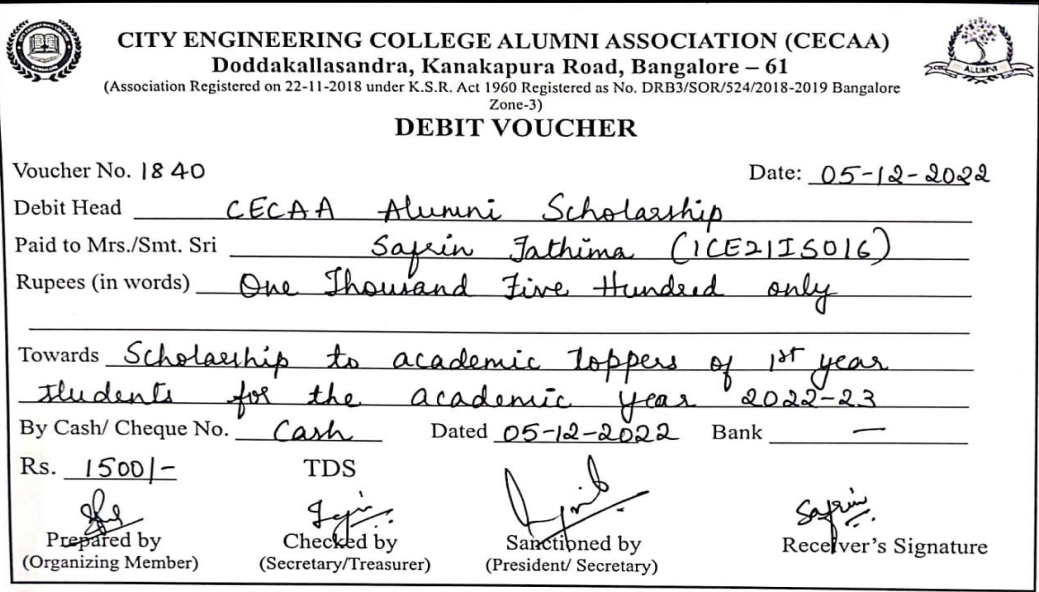 CITY ENGINEERING COLLEGE ALUMNI ASSOCIATION (CECAA)
Doddakallasandra, Kanakapura Road, Bangalore – 61
(Association Registered on 22-11-2018 under K.S.R. Act 1960 Registered as No. DRB3/SOR/524/2018-2019 Bangalore
Zone-3)
ALUMNI
DEBIT VOUCHER
Voucher No. 1840 Date: 05-12-2022
Debit Head CECAA Alumni Scholarship
Paid to Mrs./Smt. Sri Safrin Fathima (1CE21IS016)
Rupees (in words) One Thousand Five Hundred only
Towards Scholarship to academic toppers of 1st year
students for the academic year 2022-23
By Cash/ Cheque No. Cash Dated 05-12-2022 Bank —
Rs. 1500/- TDS
Safrin
Prepared by Checked by Sanctioned by Receiver's Signature
(Organizing Member) (Secretary/Treasurer) (President/ Secretary)